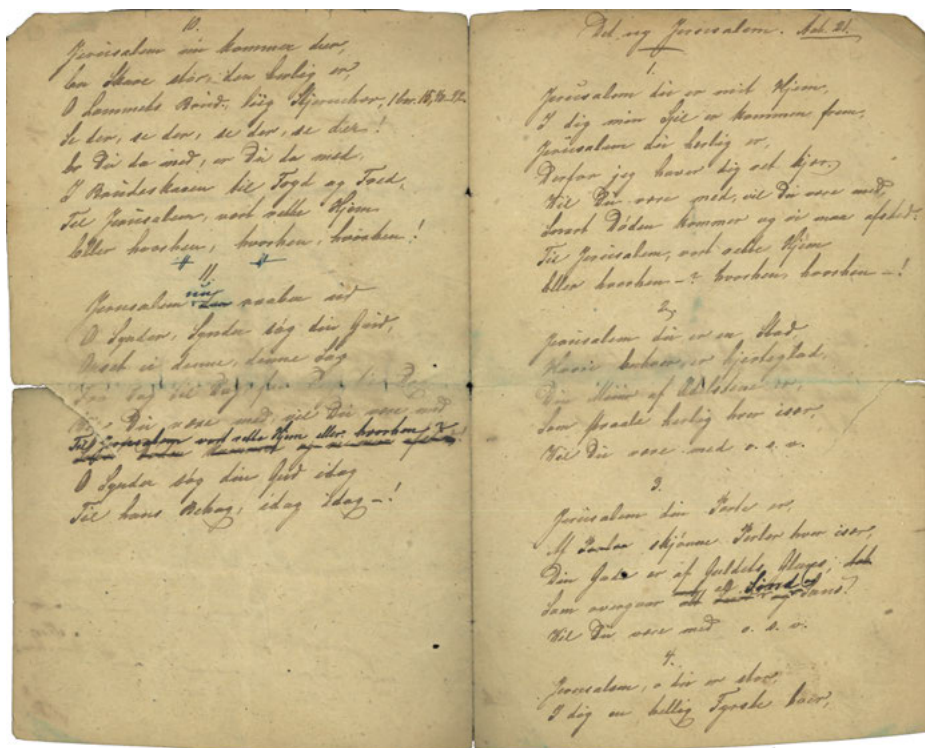 10.
Jerusalem nu kommer der,
En Skare stor, den herlig er,
O Lammets Brud, liig Stjernehær,
Se der, se der, se der, se der!
Er Du da med, er Du da med,
I Brudeskaren til Fryd og Fred,
Til Jerusalem, vort rette Hjem
Eller hvorhen, hvorhen, hvorhen!
11.
Jerusalem nu raaber ud
O Synder, Synder søg din Gud,
denne, denne Dag
Fra Dag til Dag, fra Dag til Dag
Vil Du være med, vil Du være med
Til Jerusalem vort rette Hjem eller hvorhen?
O Synder søg din Gud idag
Til hans Behag, idag idag —!
Det ny Jerusalem. Aab. 21.
1.
Jerusalem du er mit Hjem,
I dig min Sjæl er kommen frem,
Jerusalem du herlig er,
Derfor jeg haver dig ret kjær.
Vil Du være med, vil Du være med,
Snart Døden kommer og vi maa afsted.
Til Jerusalem, vort rette Hjem
Eller hvorhen —? hvorhen, hvorhen —!
2.
Jerusalem du er en Stad,
er hjerteglad,
Din Muur af Ædelstene er,
Som straale herlig hver især,
Vil Du være med o. s. v.
3.
Jerusalem din Porte er,
Af skjønne Perler hver især,
Din Gade er af Guldets Glands,
Som overgaar al Sind og Sans.
Vil Du være med o. s. v.
4.
Jerusalem, o du er stor,
I dig en hellig Fyrste boer,